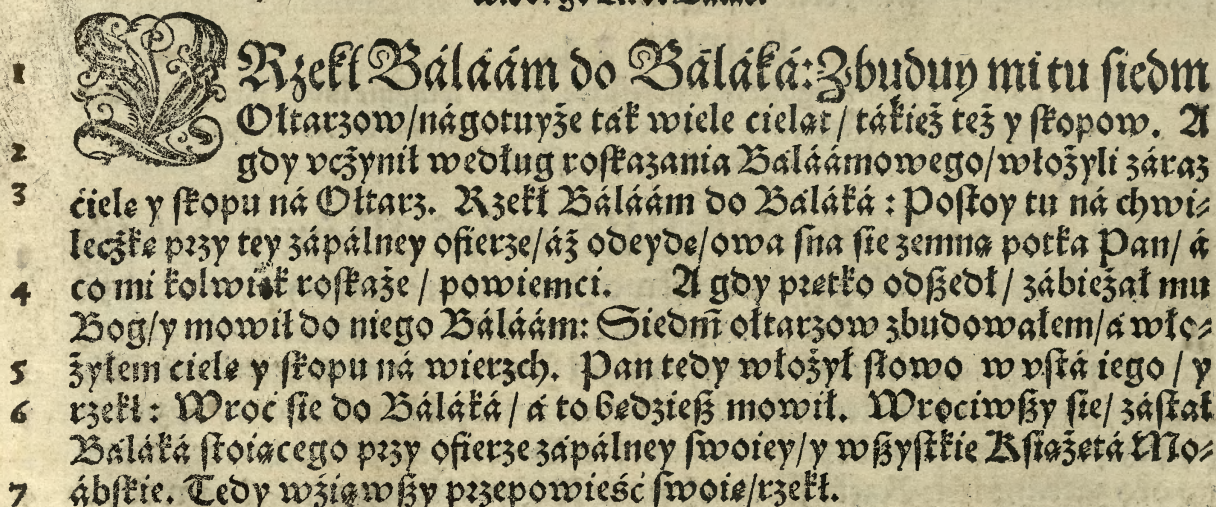 1 Y Rzekł Báláám do Báláká: Zbuduy mi tu siedm
Ołtarzow/nágotuyże ták wiele cieląt/tákież też y skopow. A
2 gdy vcżynił według roskazania Báláámowego/włożyli záraz
3 ćielę y skopu ná Ołtarz. Rzekł Báláám do Báláká: Postoy tu ná chwi-
leczkę przy tey zápálney ofierze/áż odeydę/owa sna sie zemną potka Pan/á
4 co mi kolwiek roskaże/powiemci. A gdy prętko odszedł/zábieżał mu
Bog/y mowił do niego Báláám: Siedm ołtarzow zbudowałem/á wło-
5 żyłem cielę y skopu ná wierzch. Pan tedy włożył słowo w vstá iego/y
6 rzekł: Wroć sie do Báláká/á to będziesz mowił. Wrociwszy sie/zástał
Báláká stoiącego przy ofierze zápálney swoiey/y wszystkie Książętá Mo-
7 ábskie. Tedy wziąwszy przepowieść swoię/rzekł.